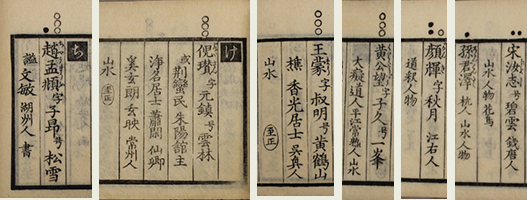 宋汝志 号碧雲 錢唐人
山水人物花鳥
孫君澤 杭人 山水人物
顔輝 字秋月 江右人
道釈人物
黄公望 字子久 号一峯
大癡道人 平江常熟人 山水
王蒙 字叔明 号黄鶴山
樵 香光居士 吳興人
山水 至正
け
倪瓚 字元鎮 号雲林
或荆蠻民 朱陽館主
浄名居士 蕭閑 仙卿
奚玄朗 玄映 常州人
山水 至正
ち
趙孟頫 字子昂 号松雪
諡文敏 湖州人 書